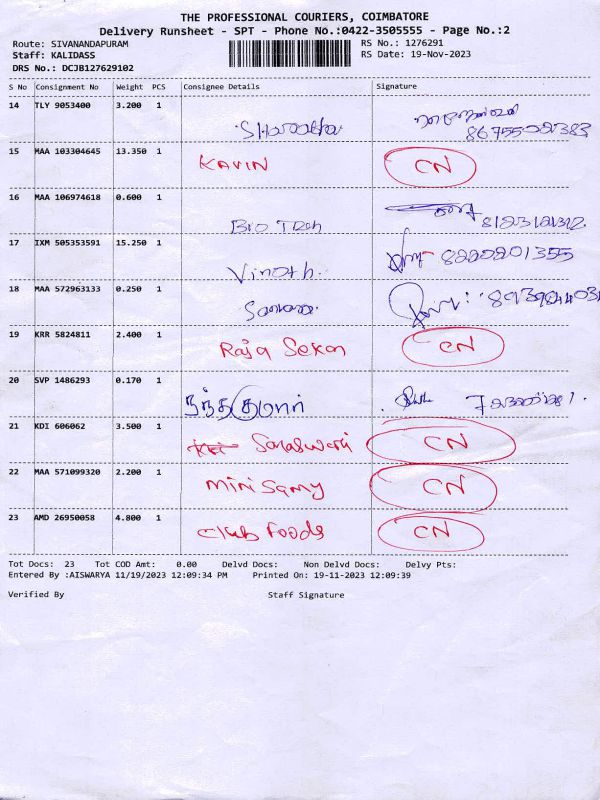 THE PROFESSIONAL COURIERS, COIMBATORE
Delivery Runsheet - SPT - Phone No.:0422-3505555 - Page No.:2
Route: SIVANANDAPURAM RS No.: 1276291
Staff: KALIDASS RS Date: 19-Nov-2023
DRS No.: DCJB127629102
S No Consignment No Weight PCS Consignee Details Signature
14 TLY 9053400 3.200 1
15 MAA 103304645 13.350 1 KAVIN CN
16 MAA 106974618 0.600 1
Bio Tech
17 IXM 505353591 15.250 1 8220201355
Vinoth.
18 MAA 572963133 0.250 1
19 KRR 5824811 2.400 1
Raja Sekar CN
20 SVP 1486293 0.170 1
நந்தகுமார்
21 KDI 606062 3.500 1
Saraswathi CN
22 MAA 571099320 2.200 1
Mini Samy CN
23 AMD 26950058 4.800 1
Club Foods CN
Tot Docs: 23 Tot COD Amt: 0.00 Delvd Docs: Non Delvd Docs: Delvy Pts:
Entered By :AISWARYA 11/19/2023 12:09:34 PM Printed On: 19-11-2023 12:09:39
Verified By Staff Signature